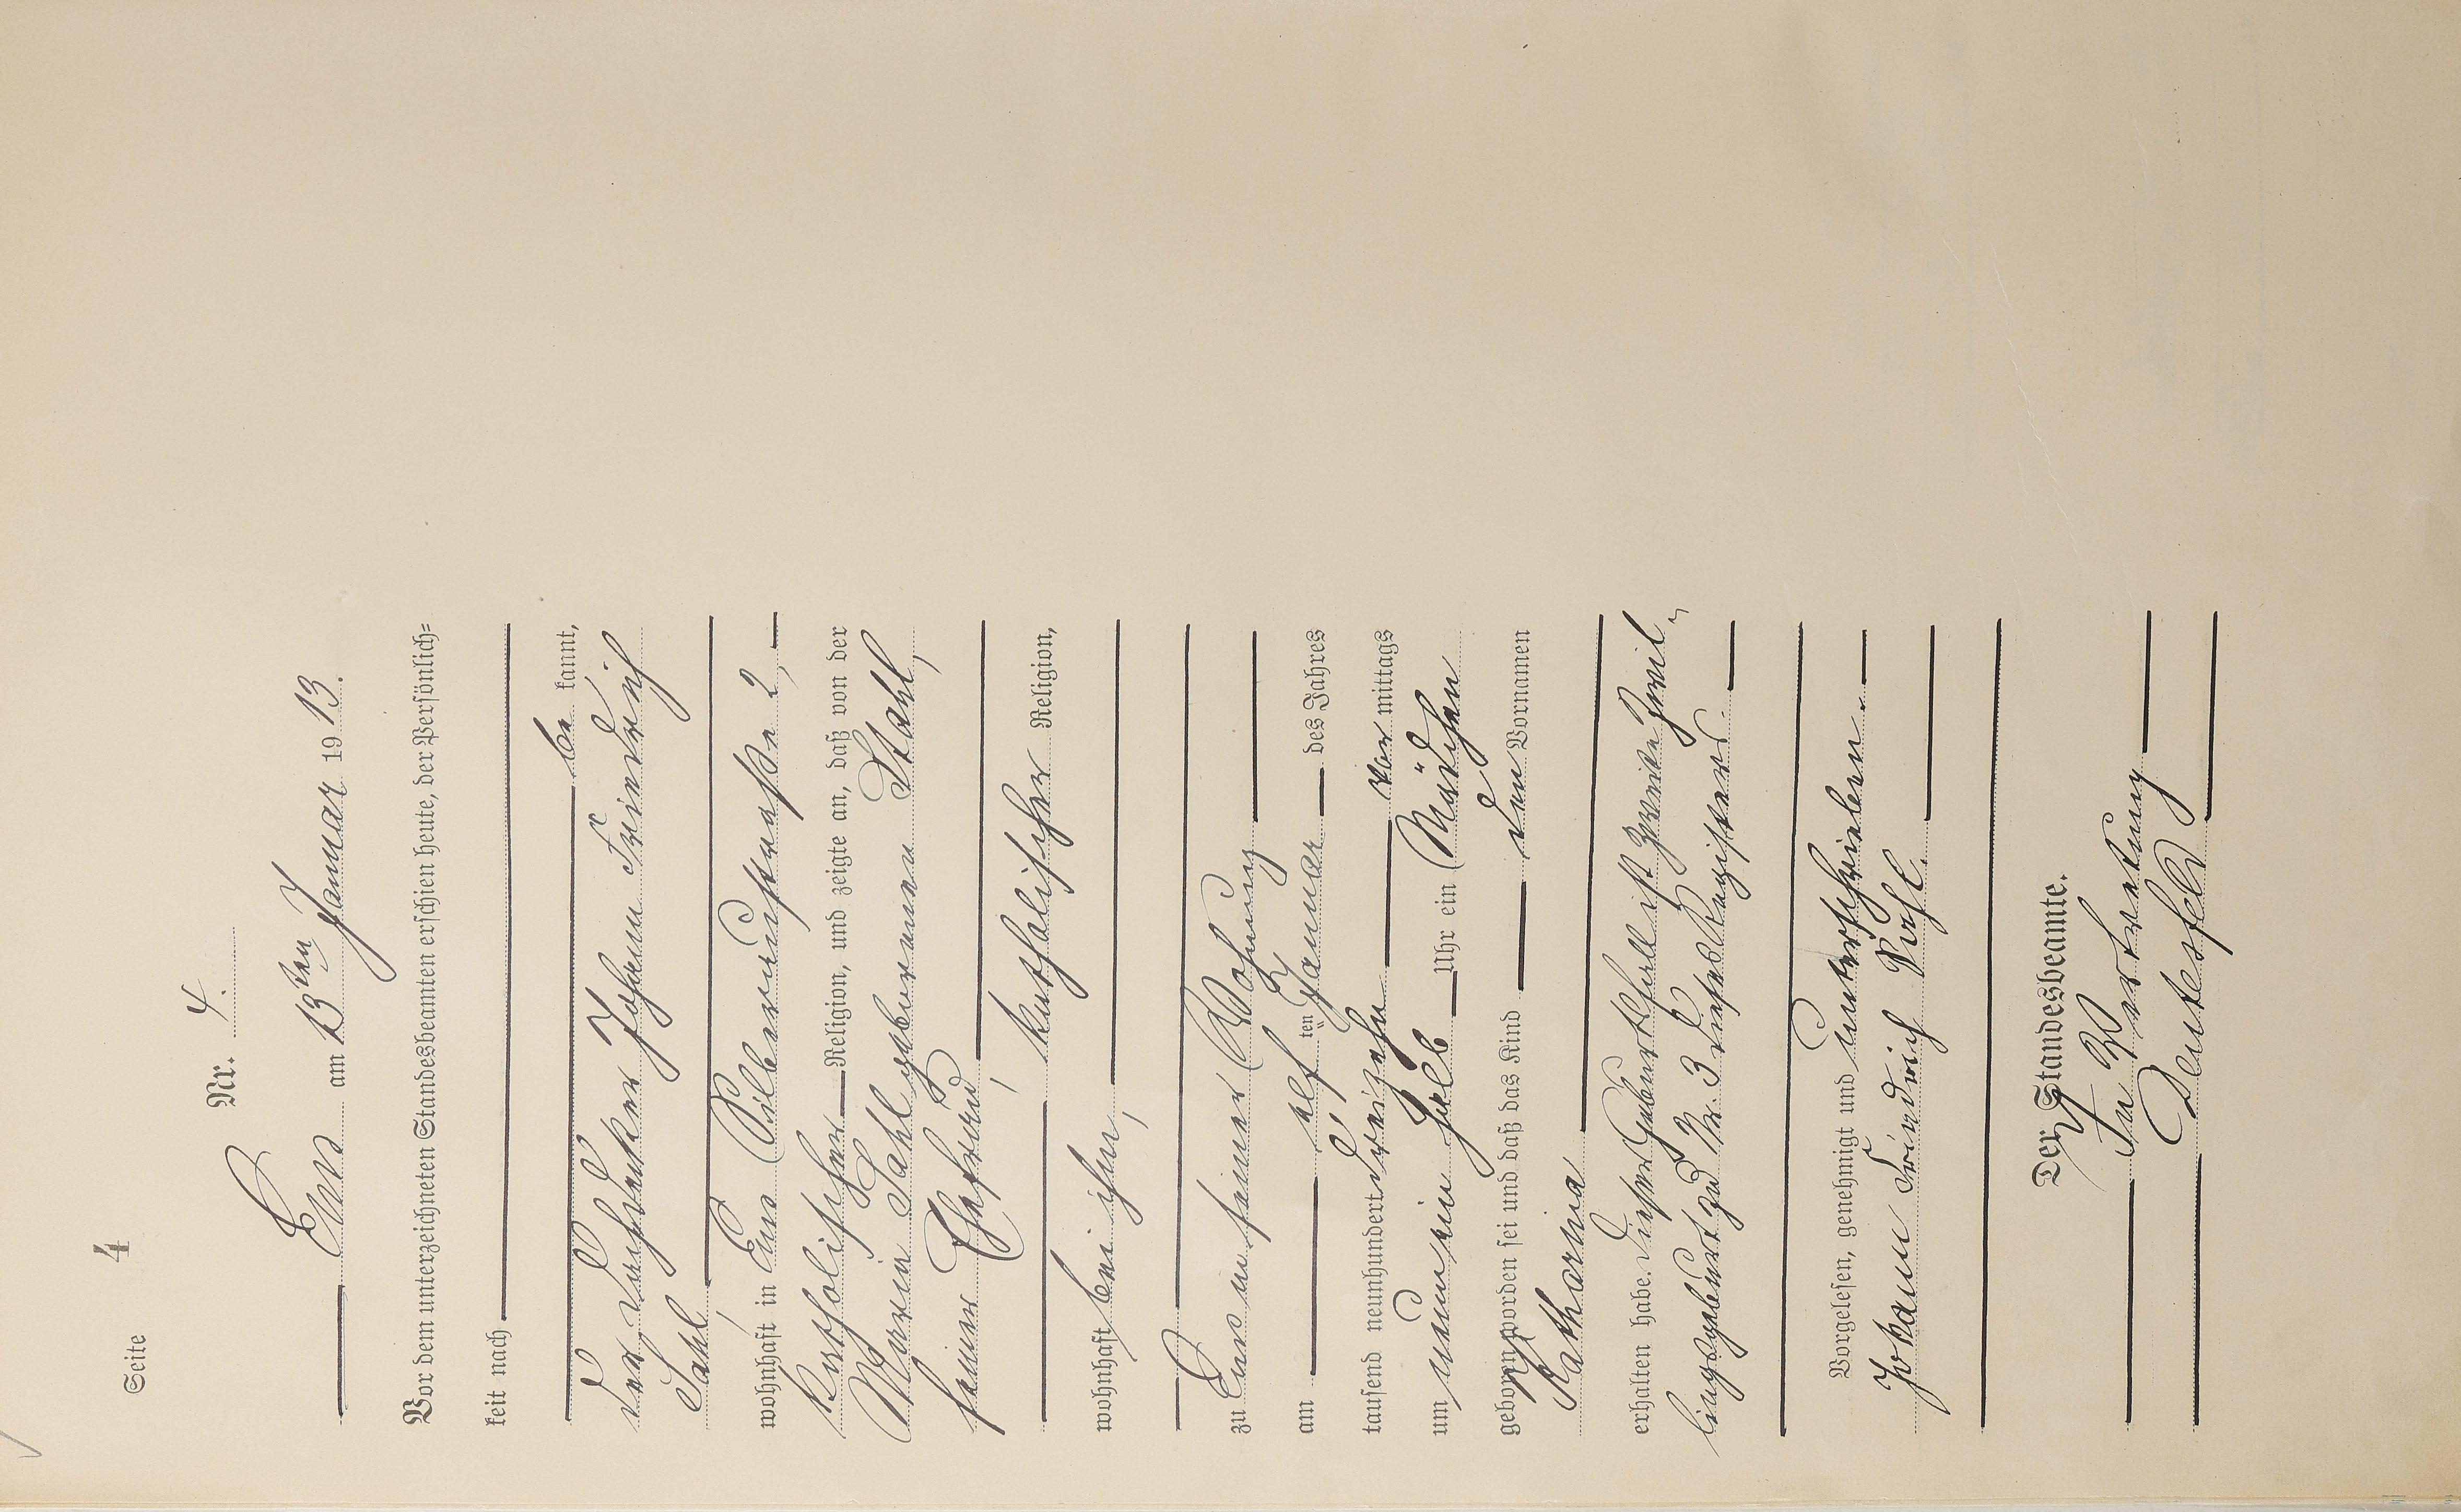 Seite 4
Nr. 4.
Ems am 13ten Januar 1913.
Vor dem unterzeichneten Standesbeamten erschien heute, der Persönlich=
keit nach
be kannt,
der Buchdrucker Johann Friedrich
Sahl,
wohnhaft in Ems Silberaustraße 2,
katholischer Religion, und zeigte an, daß von der
Maria Sahl geborenen Stahl,
seiner Ehefrau,
katholischer Religion,
wohnhaft bei ihm,
zu Ems in seiner Wohnung
am elf ten Januar des Jahres
tausend neunhundert dreizehn vor mittags
um neunein halb Uhr ein Mädchen
geboren worden sei und daß das Kind den Vornamen
Katharina
erhalten habe. Dieser Geburtsfall ist zweite Zwil,
lingsgeburt zu Nr. 3 dieses Registers.
Vorgelesen, genehmigt und unterschrieben.
Johann Friedrich Sahl.
Der Standesbeamte.
In Vertretung